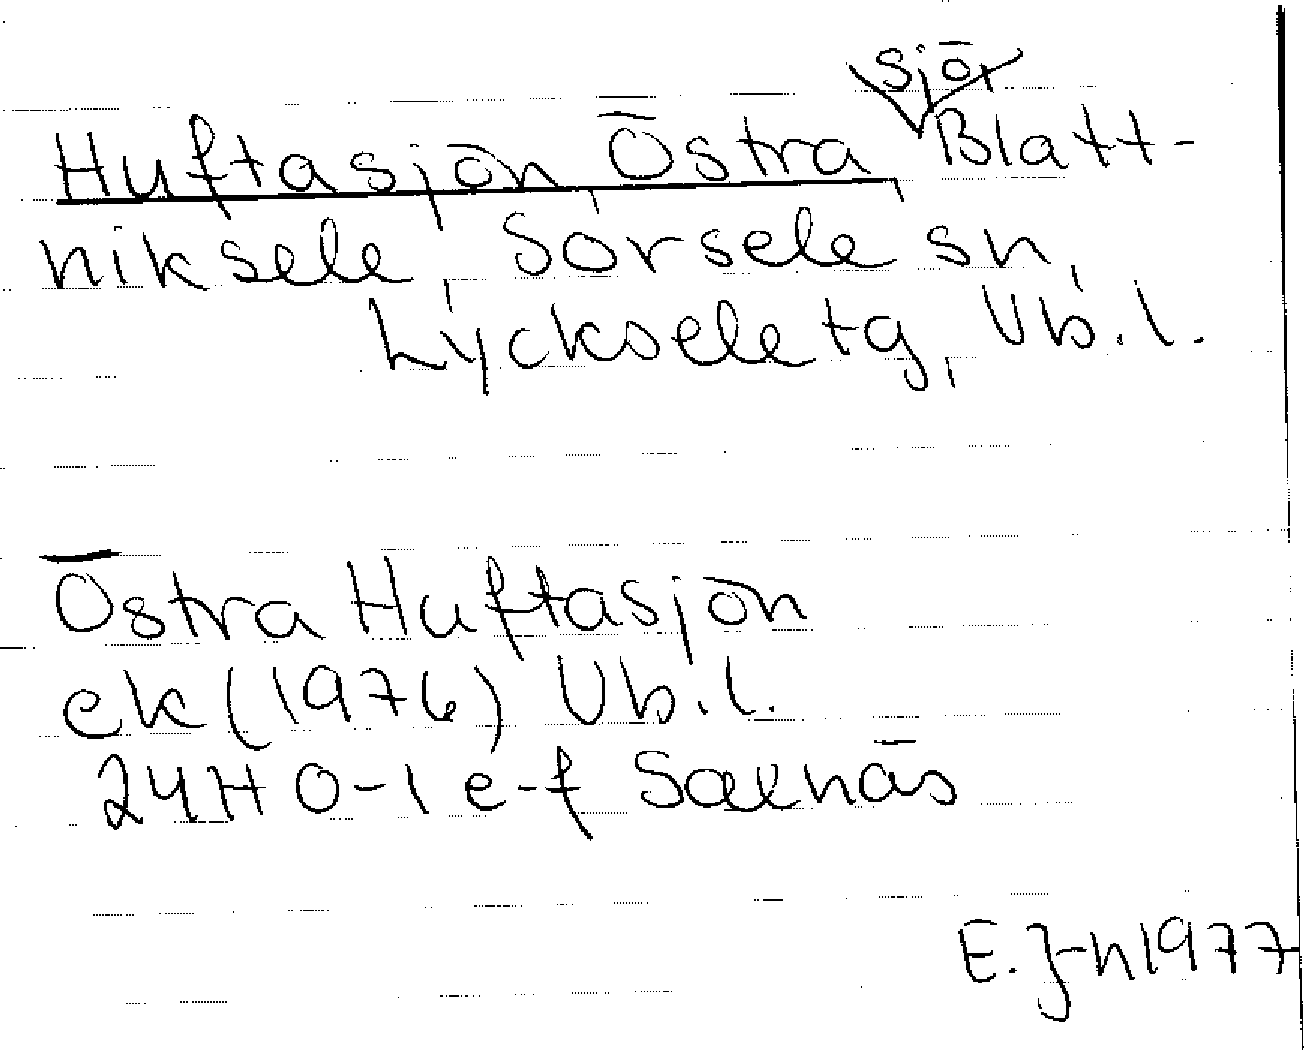 Huftasjön, Östra, sjö, Blatt-
niksele, Sorsele sn,
Lycksele tg, Vb. l.
Östra Huftasjön
ek (1976) Vb. l.
24H 0-1 e-f Saxnäs
E. J-n 1977